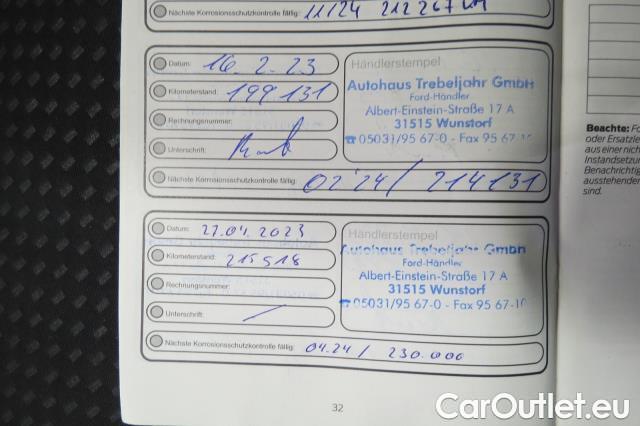 Nächste Korrosionsschutzkontrolle fällig: 11/24 212 267 KM
Datum: 16.2.23
Händlerstempel
Kilometerstand: 199 131
Autohaus Trebeljahr GmbH
Ford-Händler
Rechnungsnummer:
Albert-Einstein-Straße 17 A
31515 Wunstorf
Unterschrift:
☎ 05031/95 67-0 - Fax 95 67-10
Nächste Korrosionsschutzkontrolle fällig: 02'24 / 214131
Datum: 27.04.2023
Händlerstempel
Kilometerstand: 215918
Autohaus Trebeljahr GmbH
Ford-Händler
Rechnungsnummer:
Albert-Einstein-Straße 17 A
31515 Wunstorf
Unterschrift:
☎ 05031/95 67-0 - Fax 95 67-10
Nächste Korrosionsschutzkontrolle fällig: 04.24 / 230.000
32
Beachte:
oder Ersatzle
aus einer nich
Instandsetzu
Benachrichtig
ausstehenden
sind.
CarOutlet.eu